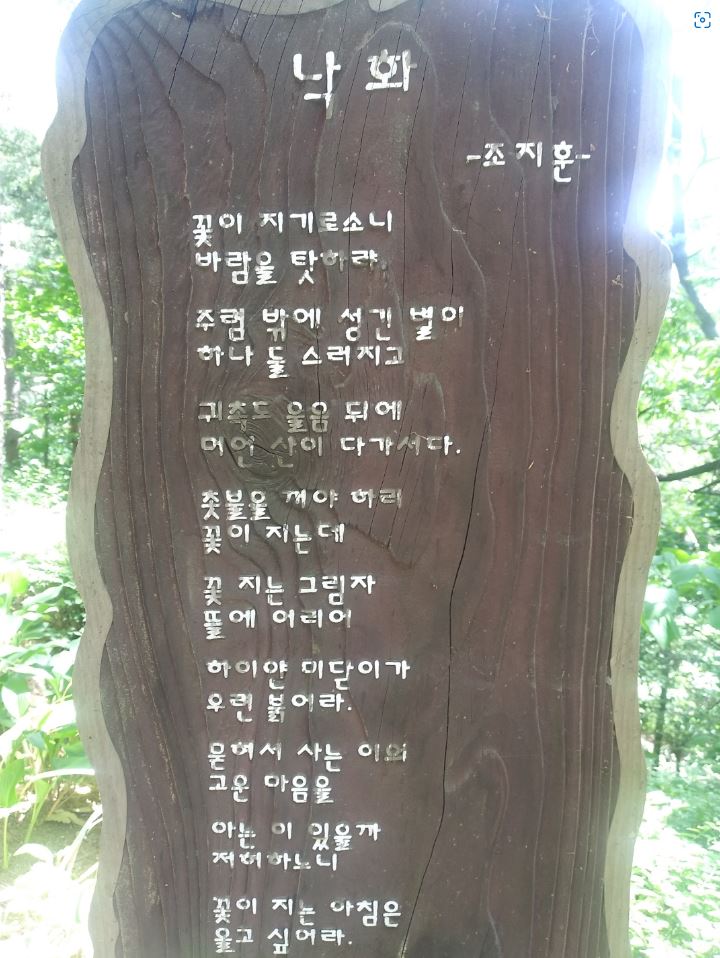 낙화
-조지훈-
꽃이 지기로소니
바람을 탓하랴.
주렴 밖에 성긴 별이
하나 둘 스러지고
귀촉도 울음 뒤에
머언 산이 다가서다.
촛불을 꺼야 하리
꽃이 지는데
꽃 지는 그림자
뜰에 어리어
하이얀 미닫이가
우련 붉어라.
묻혀서 사는 이의
고운 마음을
아는 이 있을까
저허하노니
꽃이 지는 아침은
울고 싶어라.